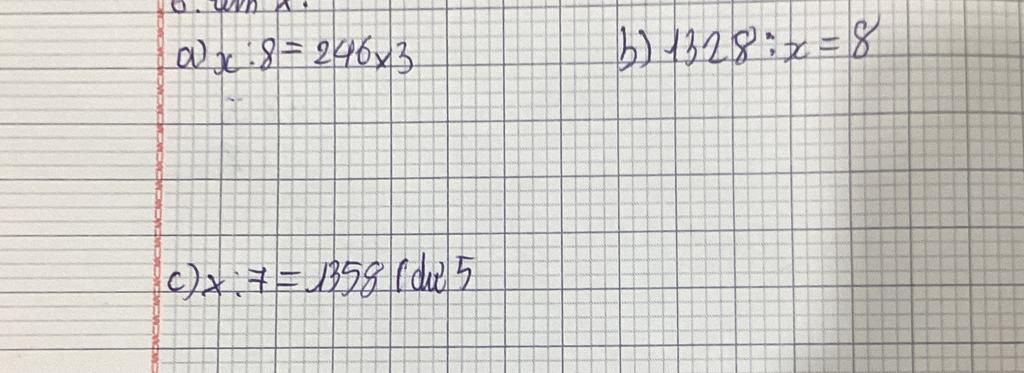 6. Tìm x.
a) x : 8 = 246 x 3
b) 1328 : x = 8
c) x : 7 = 1358 (dư) 5